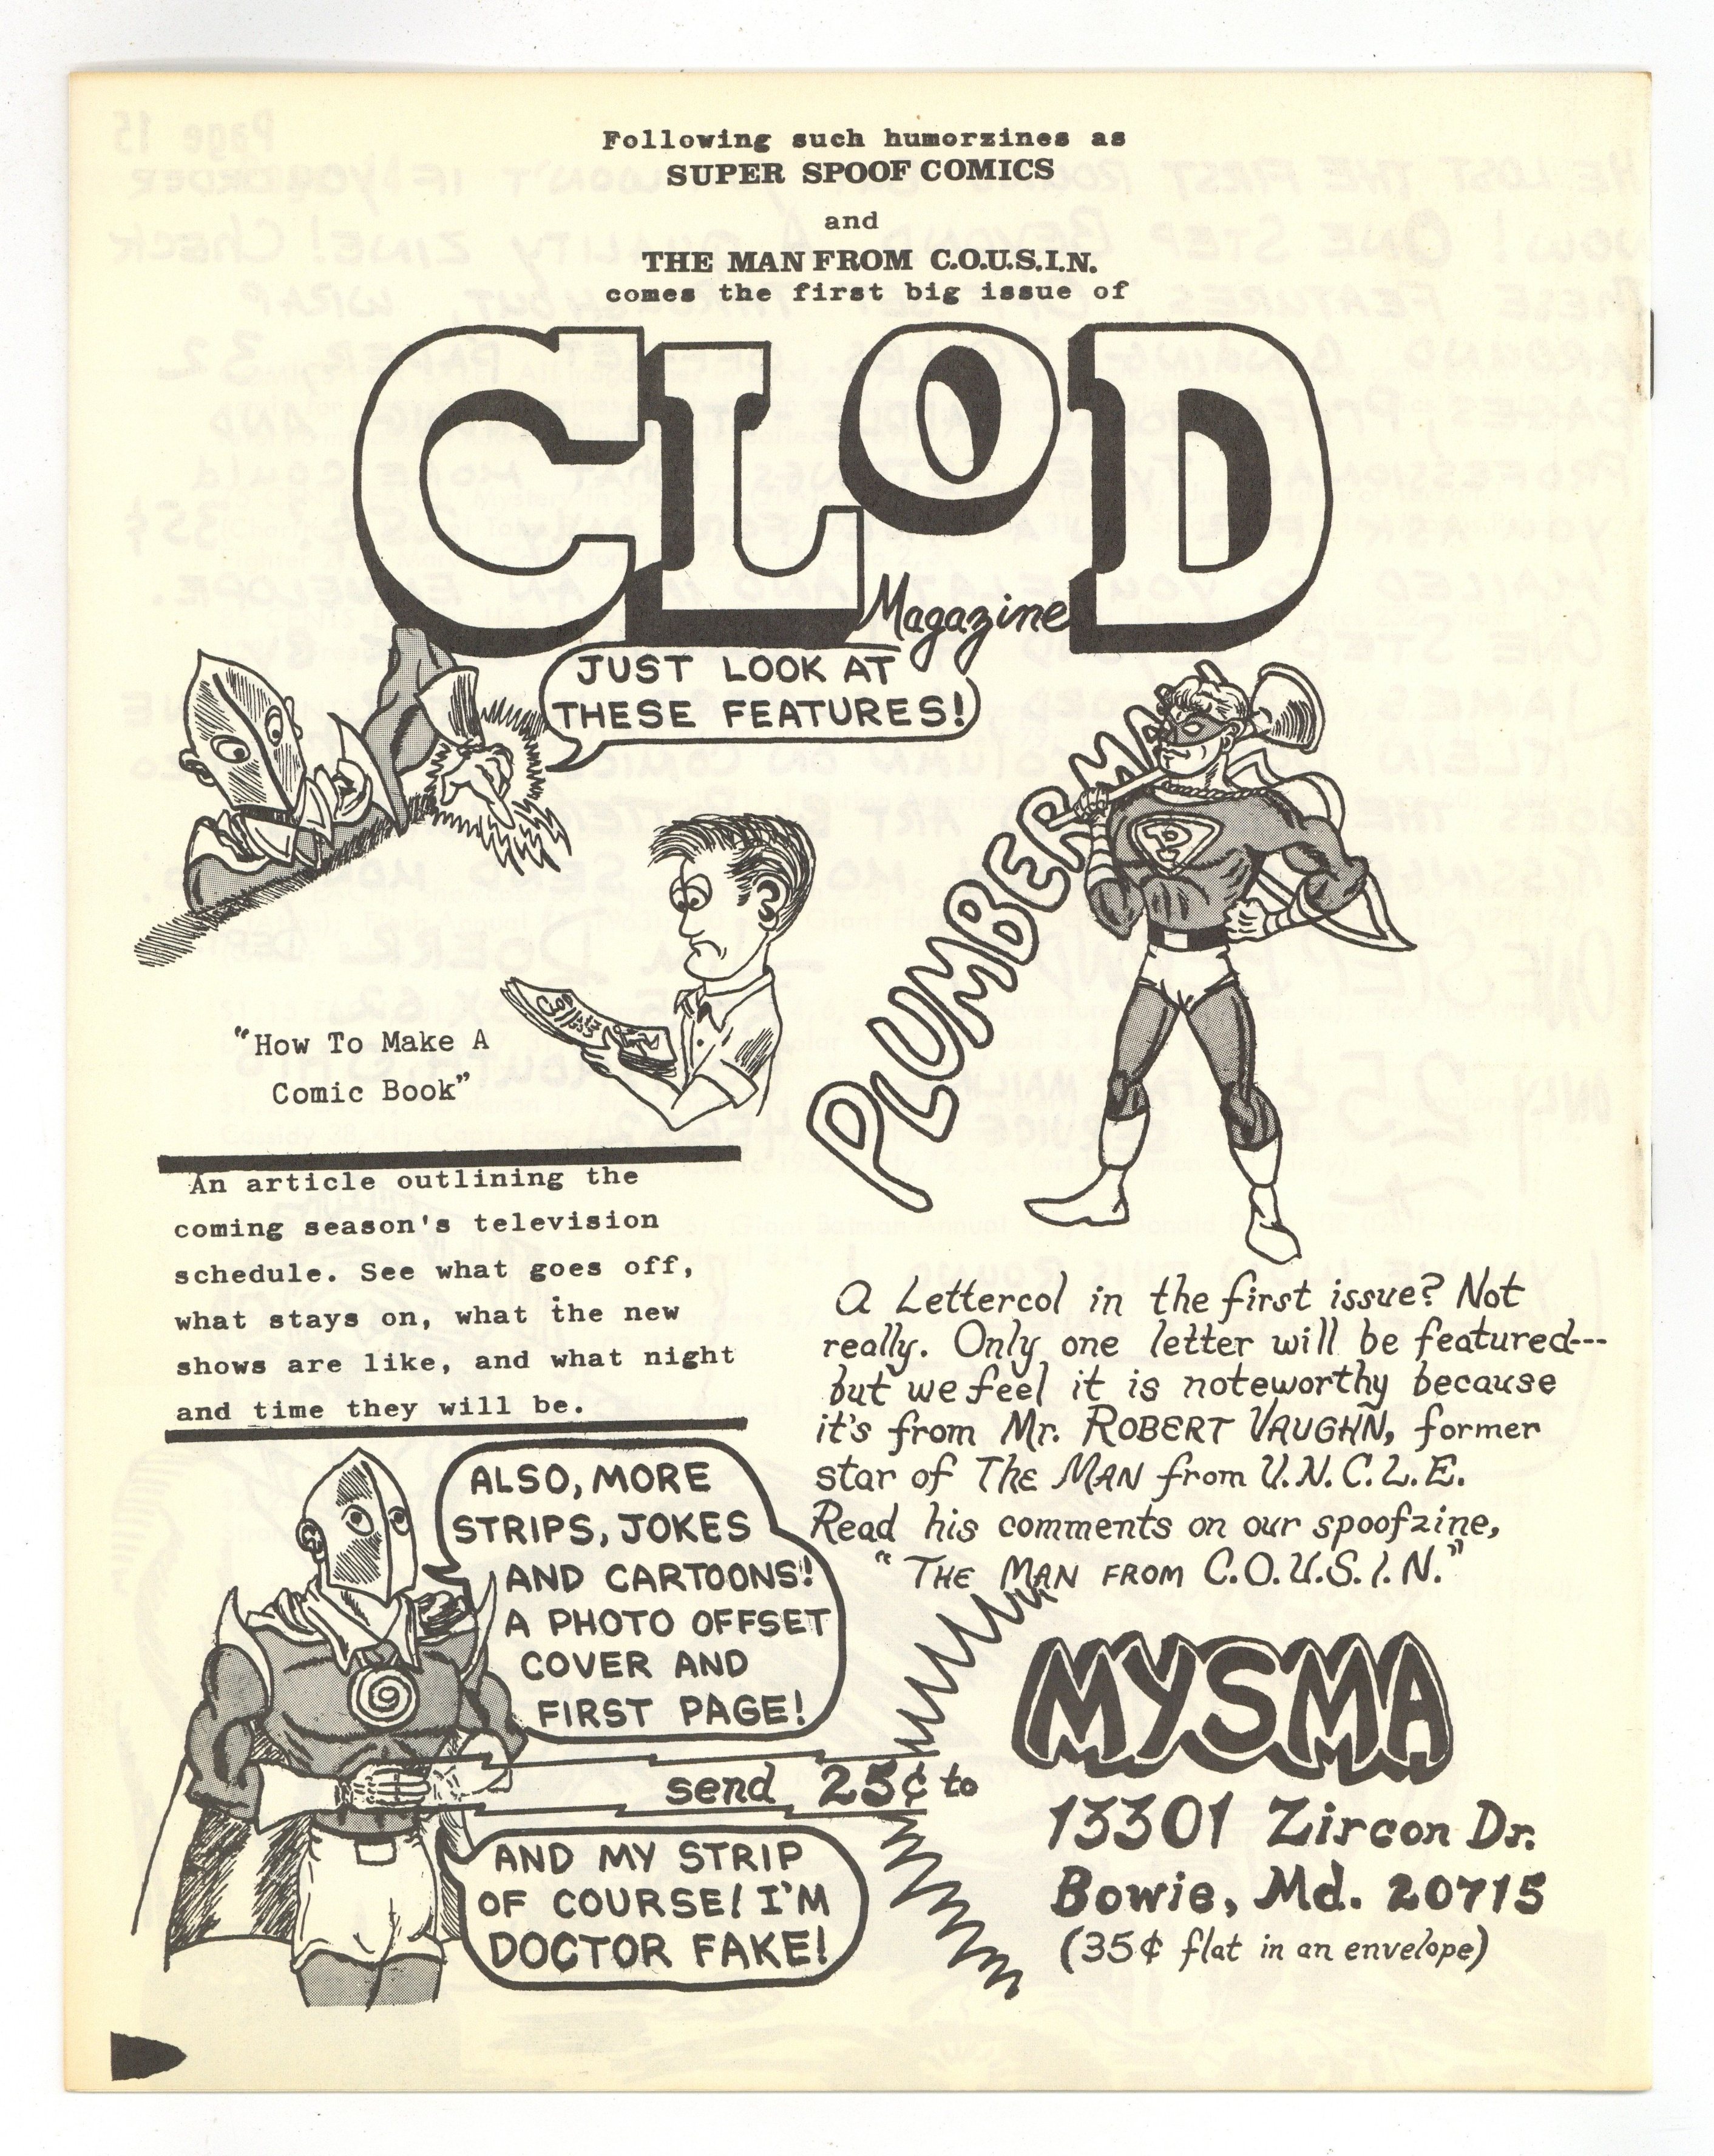 Following such humorzines as
SUPER SPOOF COMICS
and
THE MAN FROM C.O.U.S.I.N.
comes the first big issue of
CLOD
Magazine
JUST LOOK AT
THESE FEATURES!
PLUMBERMA
P
"How To Make A
Comic Book"
An article outlining the
coming season's television
schedule. See what goes off,
what stays on, what the new
shows are like, and what night
and time they will be.
A Lettercol in the first issue? Not
really. Only one letter will be featured---
but we feel it is noteworthy because
it's from Mr. ROBERT VAUGHN, former
star of THE MAN from U.N.C.L.E.
Read his comments on our spoofzine,
"THE MAN FROM C.O.U.S.I.N."
ALSO, MORE
STRIPS, JOKES
AND CARTOONS!
A PHOTO OFFSET
COVER AND
FIRST PAGE!
send 25¢ to
MYSMA
13301 Zircon Dr.
Bowie, Md. 20715
(35¢ flat in an envelope)
AND MY STRIP
OF COURSE! I'M
DOCTOR FAKE!